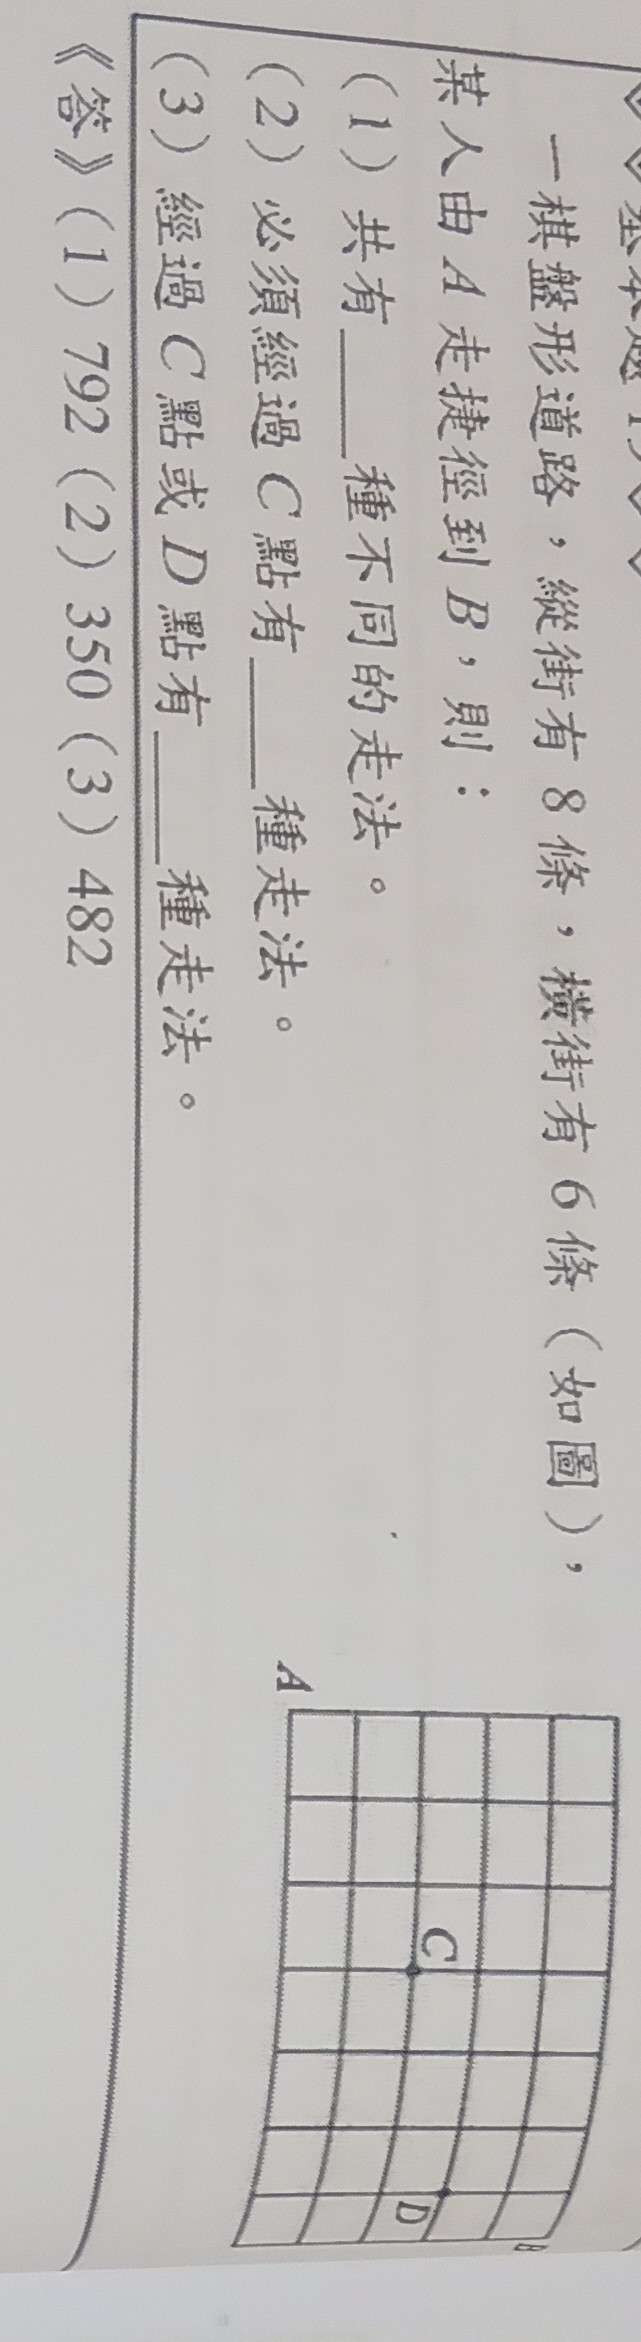 一棋盤形道路，縱街有 8 條，橫街有 6 條（如圖），
某人由 A 走捷徑到 B，則：
（1）共有____種不同的走法。
（2）必須經過 C 點有____種走法。
（3）經過 C 點或 D 點有____種走法。
《答》（1）792（2）350（3）482
A
C
D
B